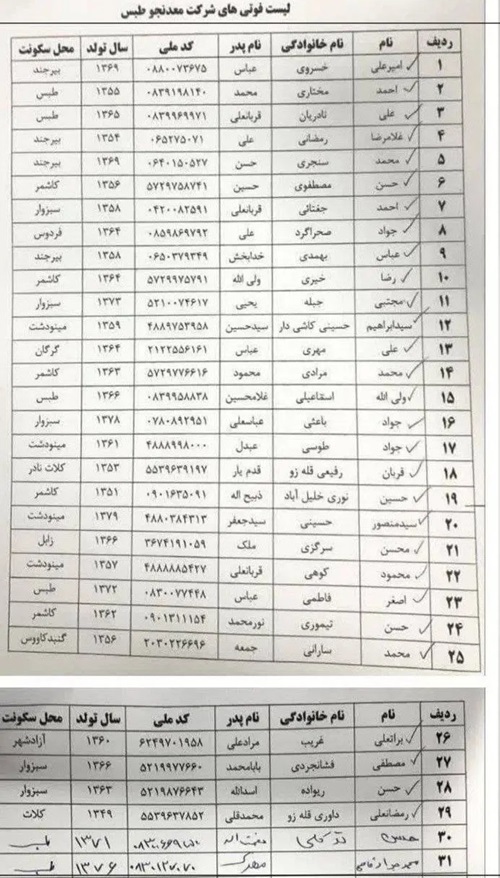 لیست فوتی های شرکت معدنجو طبس
ردیف نام نام خانوادگی نام پدر کد ملی سال تولد محل سکونت
۱ امیرعلی خسروی عباس ۰۸۸۰۰۷۳۶۷۵ ۱۳۶۹ بیرجند
۲ احمد مختاری محمد ۰۸۳۹۱۹۸۱۴۰ ۱۳۵۵ طبس
۳ علی نادریان قربانعلی ۰۸۳۹۹۶۹۹۷۱ ۱۳۶۵ طبس
۴ غلامرضا رمضانی علی ۰۶۵۲۷۵۰۷۱ ۱۳۵۴ بیرجند
۵ محمد سنجری حسن ۰۶۴۰۱۵۰۵۲۷ ۱۳۶۹ بیرجند
۶ حسن مصطفوی حسین ۵۷۲۹۷۵۸۷۴۱ ۱۳۵۶ کاشمر
۷ احمد جغتائی قربانعلی ۰۴۲۰۰۸۲۵۹۱ ۱۳۵۸ سبزوار
۸ جواد صحراگرد علی ۰۸۵۹۸۶۹۷۹۲ ۱۳۶۴ فردوس
۹ عباس بهمدی خدابخش ۰۶۵۰۳۷۹۳۴۹ ۱۳۵۸ بیرجند
۱۰ رضا خیری ولی الله ۵۷۲۹۹۷۵۷۹۱ ۱۳۶۴ کاشمر
۱۱ مجتبی جبله یحیی ۵۲۱۰۰۷۴۶۱۷ ۱۳۷۳ سبزوار
۱۲ سیدابراهیم حسینی کاشی دار سیدحسین ۴۸۸۹۷۵۳۹۵۸ ۱۳۵۹ مینودشت
۱۳ علی مهری عباس ۲۱۲۲۵۵۶۱۶۱ ۱۳۶۴ گرگان
۱۴ محمد مرادی محمود ۵۷۲۹۷۷۶۶۱۶ ۱۳۶۳ کاشمر
۱۵ ولی الله اسقاعیلی غلامحسین ۰۸۳۹۹۵۸۸۳۸ ۱۳۶۶ طبس
۱۶ جواد باغثی عباسعلی ۰۷۸۰۸۹۲۹۵۱ ۱۳۷۸ سبزوار
۱۷ جواد طوسی عبدل ۴۸۸۸۹۹۸۰۰۰ ۱۳۶۱ مینودشت
۱۸ قربان رفیعی قله زو قدم یار ۵۵۳۹۶۳۹۱۹۷ ۱۳۵۳ کلات نادر
۱۹ حسین نوری خلیل آباد ذبیح اله ۰۹۰۱۶۳۵۰۹۱ ۱۳۵۱ کاشمر
۲۰ سیدمنصور حسینی سیدجعفر ۴۸۸۰۳۸۴۳۱۳ ۱۳۷۹ مینودشت
۲۱ محسن سرگزی ملک ۳۶۷۴۱۹۱۰۵۹ ۱۳۶۶ زابل
۲۲ محمود کوهی قربانعلی ۴۸۸۸۸۸۵۴۲۷ ۱۳۵۷ مینودشت
۲۳ اصغر فاطمی عباس ۰۸۳۰۰۷۷۴۴۸ ۱۳۷۲ طبس
۲۴ حسن تیموری نورمحمد ۰۹۰۱۳۱۱۱۵۴ ۱۳۶۲ کاشمر
۲۵ محمد سارانی جمعه ۲۰۳۰۲۲۶۶۹۶ ۱۳۵۶ گنبدکاووس
ردیف نام نام خانوادگی نام پدر کد ملی سال تولد محل سکونت
۲۶ براتعلی غریب مرادعلی ۶۲۴۹۷۰۱۹۵۸ ۱۳۶۰ آزادشهر
۲۷ مصطفی فشانجردی بابامحمد ۵۲۱۹۹۷۷۶۶۰ ۱۳۶۶ سبزوار
۲۸ حسن ریواده اسدالله ۵۲۱۹۸۷۶۶۴۳ ۱۳۶۳ سبزوار
۲۹ رمضانعلی داوری قله زو محمدقلی ۵۵۳۹۶۳۷۸۵۲ ۱۳۴۹ کلات
۳۰ ۱۳۷۱ طبس
۳۱ ۱۳۷۶ طبس